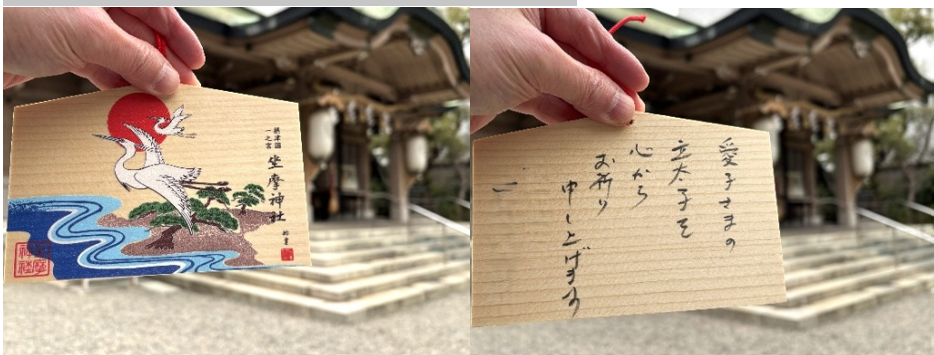 摂津国
一之宮
坐摩神社
愛子さまの
立太子を
心から
お祈り
申し上げます